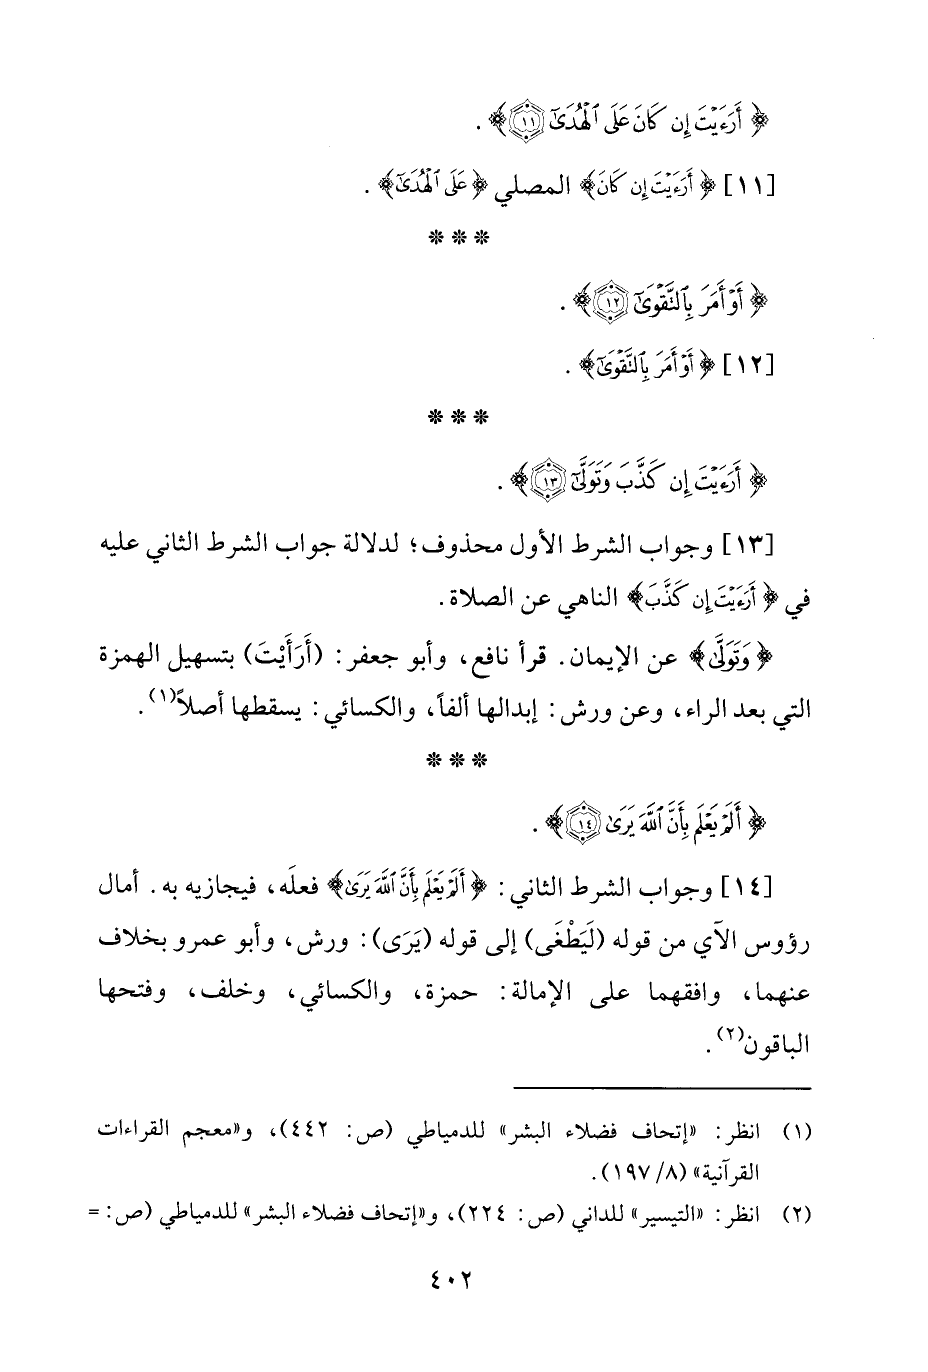 ﴿ أَرَءَيْتَ إِن كَانَ عَلَى ٱلْهُدَىٰٓ ١١ ﴾ .
[١١] ﴿ أَرَءَيْتَ إِن كَانَ ﴾ المصلي ﴿ عَلَى ٱلْهُدَىٰٓ ﴾ .
* * *
﴿ أَوْ أَمَرَ بِٱلتَّقْوَىٰٓ ١٢ ﴾ .
[١٢] ﴿ أَوْ أَمَرَ بِٱلتَّقْوَىٰٓ ﴾ .
* * *
﴿ أَرَءَيْتَ إِن كَذَّبَ وَتَوَلَّىٰٓ ١٣ ﴾ .
[١٣] وجواب الشرط الأول محذوف؛ لدلالة جواب الشرط الثاني عليه
في ﴿ أَرَءَيْتَ إِن كَذَّبَ ﴾ الناهي عن الصلاة.
﴿ وَتَوَلَّىٰٓ ﴾ عن الإيمان. قرأ نافع، وأبو جعفر: (أَرَأَيْتَ) بتسهيل الهمزة
التي بعد الراء، وعن ورش: إبدالها ألفاً، والكسائي: يسقطها أصلاً(١).
* * *
﴿ أَلَمْ يَعْلَم بِأَنَّ ٱللَّهَ يَرَىٰ ١٤ ﴾ .
[١٤] وجواب الشرط الثاني: ﴿ أَلَمْ يَعْلَم بِأَنَّ ٱللَّهَ يَرَىٰ ﴾ فعلَه، فيجازيه به. أمال
رؤوس الآي من قوله (لَيَطْغَى) إلى قوله (يَرَى): ورش، وأبو عمرو بخلاف
عنهما، وافقهما على الإمالة: حمزة، والكسائي، وخلف، وفتحها
الباقون(٢).
(١) انظر: «إتحاف فضلاء البشر» للدمياطي (ص: ٤٤٢)، و«معجم القراءات
القرآنية» (٨/ ١٩٧).
(٢) انظر: «التيسير» للداني (ص: ٢٢٤)، و«إتحاف فضلاء البشر» للدمياطي (ص: =
٤٠٢